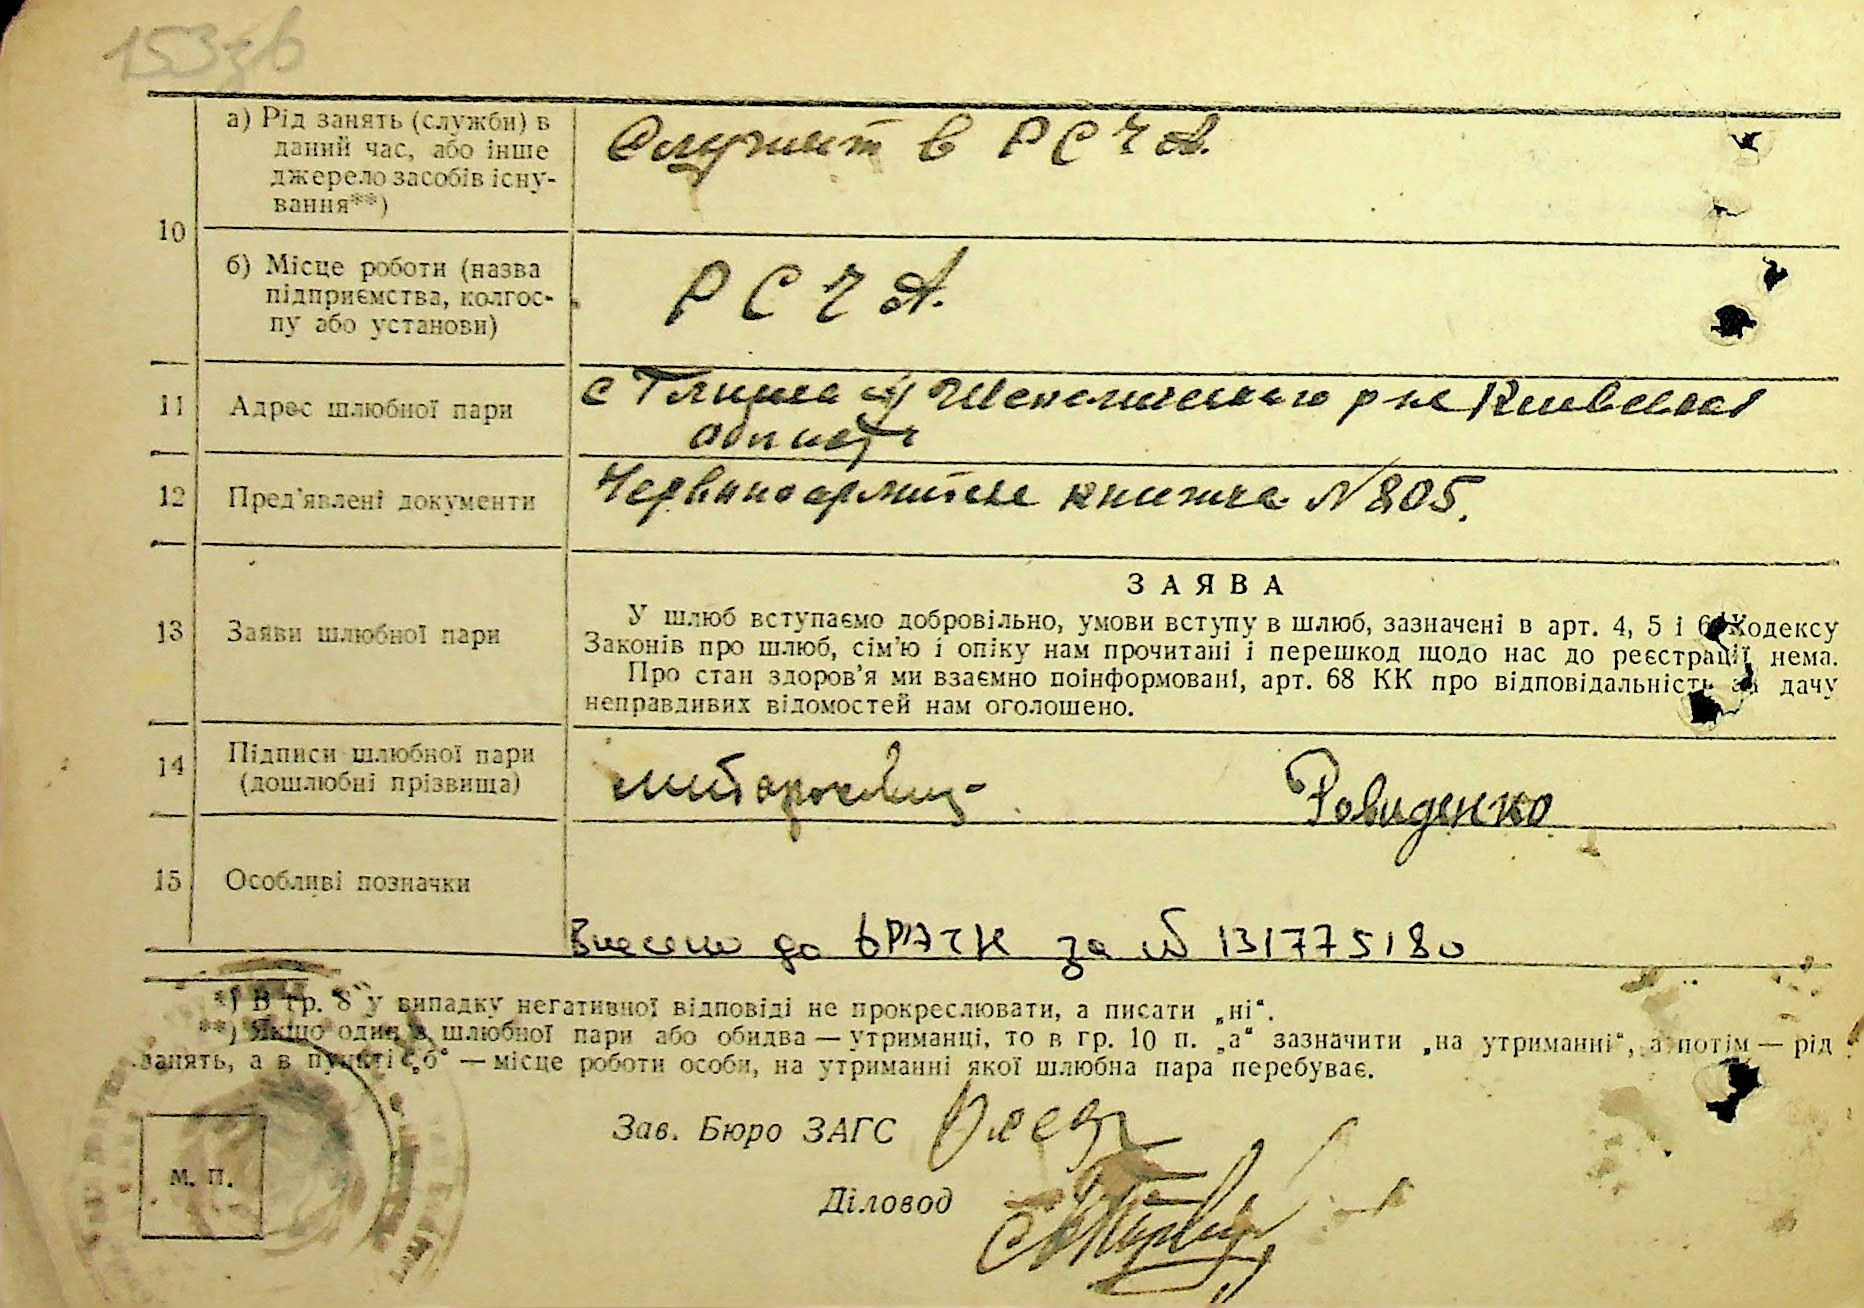 153зв
а) Рід занять (служби) в
даний час, або інше
джерело засобів існу-
вання**)
Служит в РСЧА.
10
б) Місце роботи (назва
підприємства, колгос-
пу або установи)
РСЧА.
11 Адрес шлюбної пари
с Глинка Шепелического р-на Киевской
області
12 Пред'явлені документи
Червоноармійська книжка N 805.
13 Заяви шлюбної пари
ЗАЯВА
У шлюб вступаємо добровільно, умови вступу в шлюб, зазначені в арт. 4, 5 і 6 Кодексу
Законів про шлюб, сім'ю і опіку нам прочитані і перешкод щодо нас до реєстрації нема.
Про стан здоров'я ми взаємно поінформовані, арт. 68 КК про відповідальність за дачу
неправдивих відомостей нам оголошено.
14 Підписи шлюбної пари
(дошлюбні прізвища)
Ревиденко
15 Особливі позначки
Внесено до ДРАЦС за № 131775180
*) В гр. 8 у випадку негативної відповіді не прокреслювати, а писати „ні“.
**) Якщо один з шлюбної пари або обидва — утриманці, то в гр. 10 п. „а“ зазначити „на утриманні“, а потім — рід
занять, а в пункті „б“ — місце роботи особи, на утриманні якої шлюбна пара перебуває.
Зав. Бюро ЗАГС
М. П.
Діловод